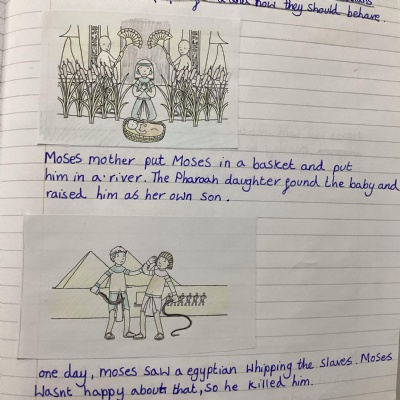 and how they should behave.
Moses mother put Moses in a basket and put
him in a river. The Pharoah daughter found the baby and
raised him as her own son.
one day, moses saw a egyptian whipping the slaves. Moses
Wasnt happy about that, so he killed him.